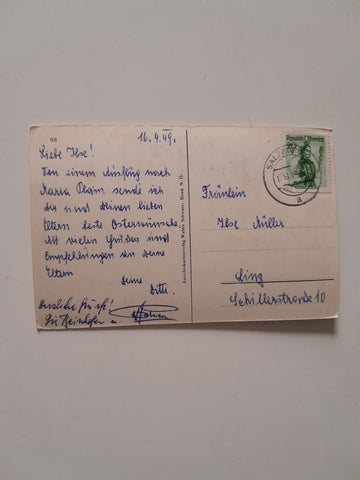 98
16.4.49.
Liebe Ilse!
Von einem Ausflug nach
Maria Plain sende ich
dir und deinen lieben
Eltern beste Osterwünsche
Mit vielen Grüßen und
Empfehlungen an deine
Eltern
deine
Herzliche Grüße!
Ansichtskartenverlag Walter Schwarz, Mank N.Ö.
SALZBURG
a
Republik Österreich
Fräulein
Ilse Müller
Linz
Schillerstraße 10